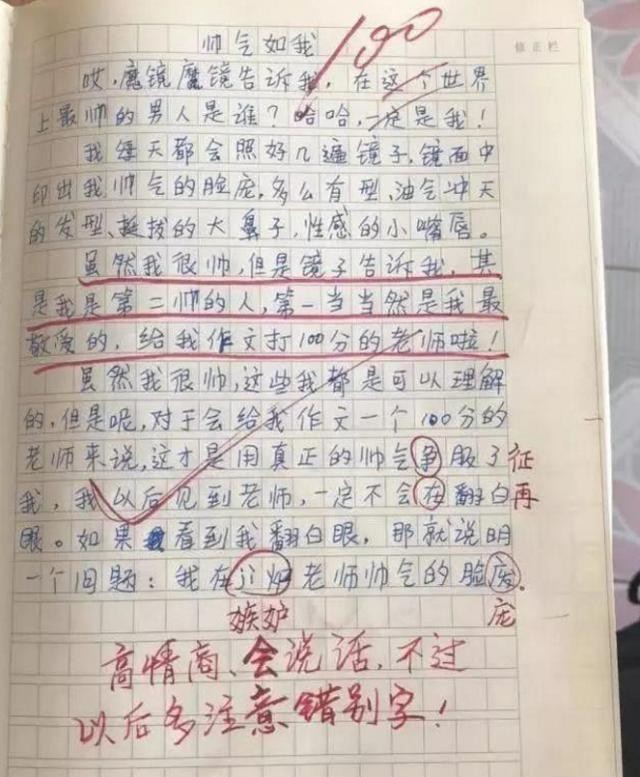 帅气如我
100
修正栏
哎，魔镜魔镜告诉我，在这个世界
上最帅的男人是谁？哈哈，一定是我！
我每天都会照好几遍镜子，镜面中
印出我帅气的脸庞，多么有型，油气冲天
的发型、挺拔的大鼻子，性感的小嘴唇。
虽然我很帅，但是镜子告诉我，其
是我是第二帅的人，第一当当然是我最
敬爱的，给我作文打100分的老师啦！
虽然我很帅，这些我都是可以理解
的，但是呢，对于会给我作文一个100分的
老师来说，这才是用真正的帅气争服了
征
我，我以后见到老师，一定不会在翻白
再
眼。如果看到我翻白眼，那就说明
一个问题：我在老师帅气的脸
嫉妒
庞
高情商、会说话，不过
以后多注意错别字！